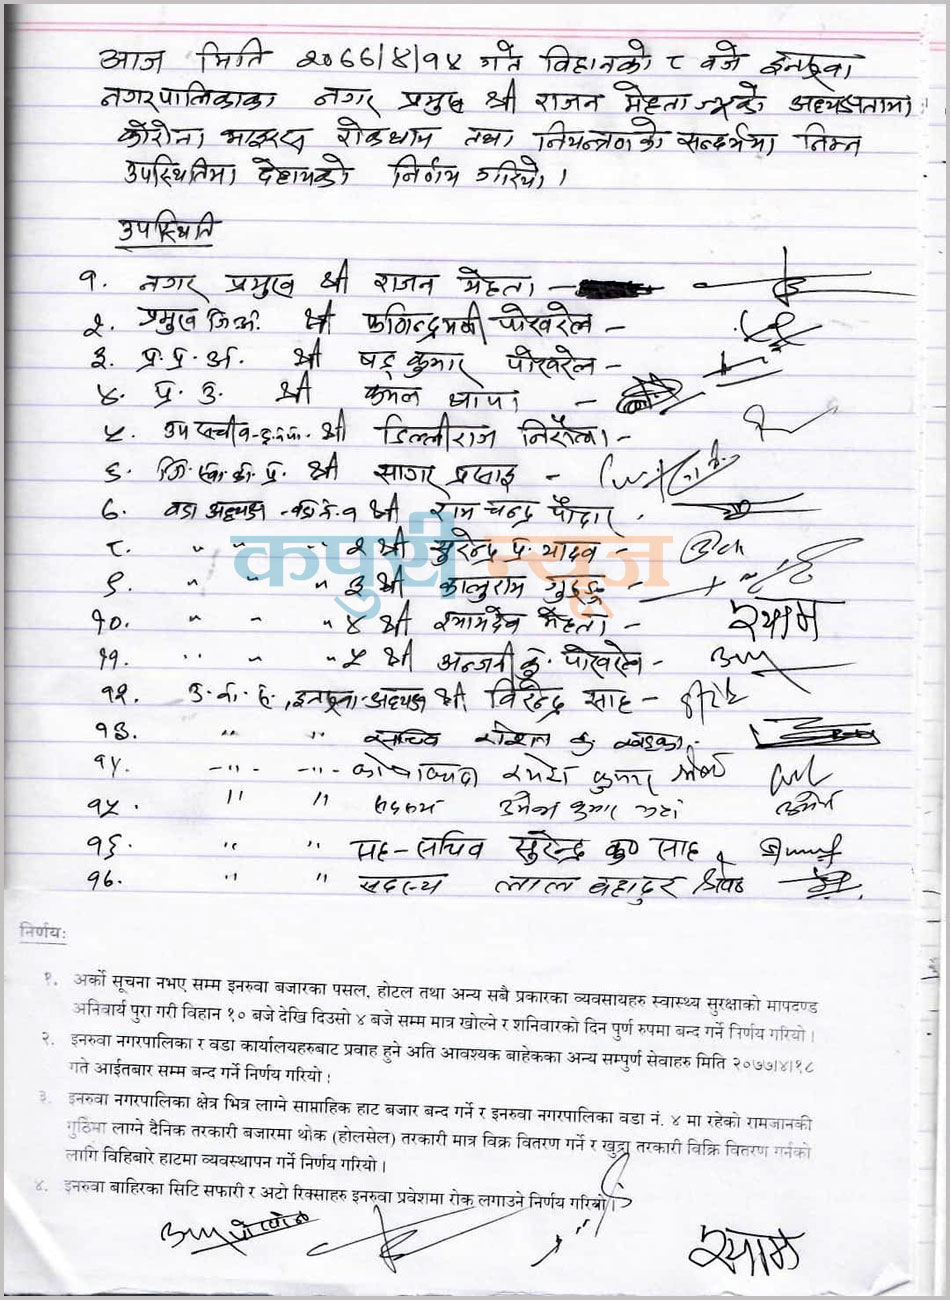 आज मिति २०७७/४/१५ गते विहानको ८ वजे इनरुवा
नगरपालिकाका नगर प्रमुख श्री राजन मेहता ज्यूको अध्यक्षतामा
कोरोना भाइरस रोकथाम तथा नियन्त्रणको सन्दर्भमा निम्न
उपस्थितिमा देहायको निर्णय गरियो।
उपस्थिति
१. नगर प्रमुख श्री राजन मेहता -
२. प्रमुख जि.अ. श्री फणिन्द्रमणी पोखरेल -
३. प्र. प्र. अ. श्री षड् कुमार पोखरेल -
४. प्र. उ. श्री कमल थापा -
५. उपसचीव श्री डिल्लीराज निरौला -
६. श्री सागर प्रसाइ -
७. वडा अध्यक्ष - वडा नं. १ श्री राम चन्द्र पौदार .
८. " " " २ श्री सुरेन्द्र प्र. यादव -
कपुरी न्यूज
९. " " " ३ श्री कालुराम गुरुङ्ग -
१०. " " " ४ श्री श्यामदेव मेहता - श्याम
११. " " " ५ श्री अन्जनी कु. पोखरेल -
१२. उ. वा. सं., इनरुवा-अध्यक्ष श्री विरेन्द्र साह -
१३. " " सचिव रोशन कु. खड्का -
१४. -"- -"- कोषाध्यक्ष रमेश कुमार श्रेष्ठ
१५ " " सदस्य उमेश कुमार
१६. " " सह-सचिव सुरेन्द्र कु० साह
१७. " " सदस्य लाल बहादुर श्रेष्ठ
निर्णय:
१. अर्को सूचना नभए सम्म इनरुवा बजारका पसल, होटल तथा अन्य सबै प्रकारका व्यवसायहरु स्वास्थ्य सुरक्षाको मापदण्ड
अनिवार्य पुरा गरी विहान १० बजे देखि दिउसो ४ बजे सम्म मात्र खोल्ने र शनिवारको दिन पुर्ण रुपमा बन्द गर्ने निर्णय गरियो।
२. इनरुवा नगरपालिका र वडा कार्यालयहरुबाट प्रवाह हुने अति आवश्यक बाहेकका अन्य सम्पुर्ण सेवाहरु मिति २०७७/४/१८
गते आईतबार सम्म बन्द गर्ने निर्णय गरियो।
३. इनरुवा नगरपालिका क्षेत्र भित्र लाग्ने साप्ताहिक हाट बजार बन्द गर्ने र इनरुवा नगरपालिका वडा नं. ४ मा रहेको रामजानकी
गुठिमा लाग्ने दैनिक तरकारी बजारमा थोक (होलसेल) तरकारी मात्र विक्र वितरण गर्ने र खुद्रा तरकारी विक्रि वितरण गर्नको
लागि विहिबारे हाटमा व्यवस्थापन गर्ने निर्णय गरियो।
४. इनरुवा बाहिरका सिटि सफारी र अटो रिक्साहरु इनरुवा प्रवेशमा रोक लगाउने निर्णय गरियो।
श्याम